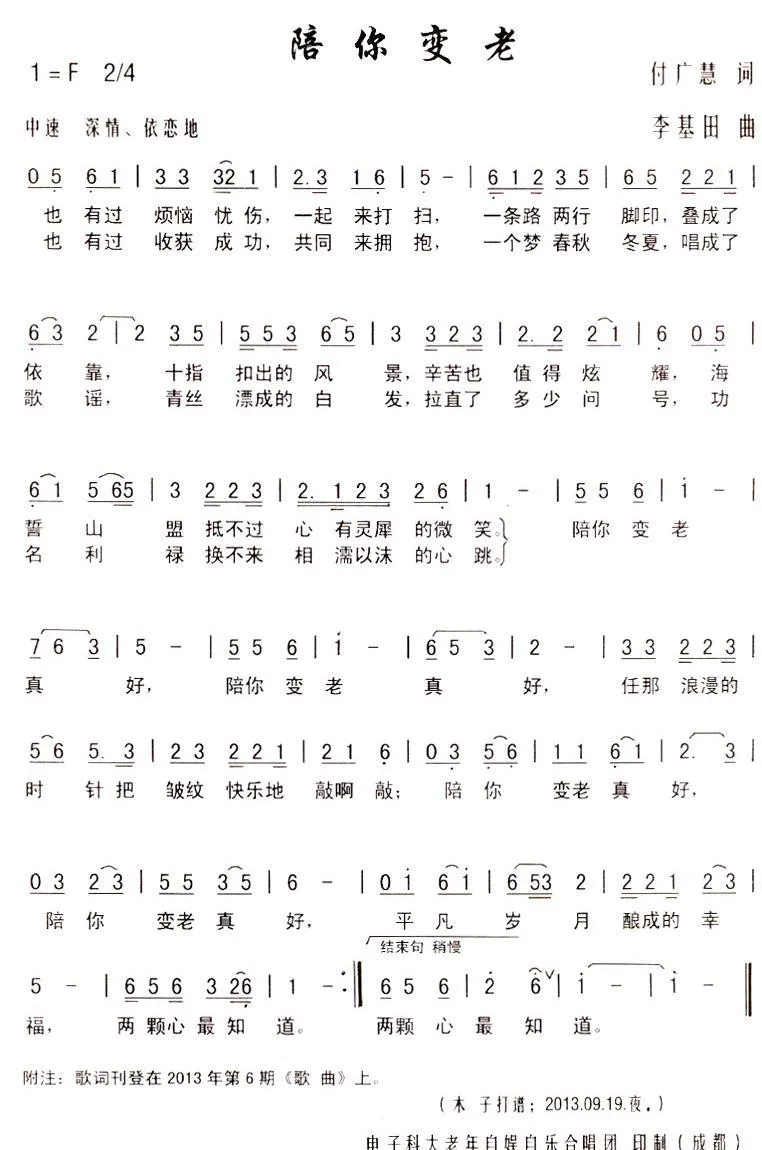 陪你变老
1=F 2/4 付广慧 词
中速 深情、依恋地 李基田 曲
0 5 6 1 | 3 3 3 2 1 | 2. 3 1 6 | 5 - | 6 1 2 3 5 | 6 5 2 2 1 |
也 有过 烦恼 忧伤, 一起 来打扫, 一条路两行 脚印,叠成了
也 有过 收获 成功, 共同 来拥抱, 一个梦春秋 冬夏,唱成了
6 3 2 | 2 3 5 | 5 5 3 6 5 | 3 3 2 2 | 2. 2 2 1 | 6 0 5 |
依 靠, 十指 扣出的 风 景,辛苦也 值得 炫 耀,海
歌 谣, 青丝 漂成的 白 发,拉直了 多少 问 号,功
6 1 5 6 5 | 3 2 2 3 | 2. 1 2 3 2 6 | 1 - | 5 5 6 | 1 - |
誓 山 盟 抵不过 心 有灵犀 的微 笑。 陪你 变 老
名 利 禄 换不来 相 濡以沫 的心 跳。
7 6 3 | 5 - | 5 5 6 | 1 - | 6 5 3 | 2 - | 3 3 2 2 3 |
真 好, 陪你 变 老 真 好, 任那 浪漫的
5 6 5. 3 | 2 3 2 2 1 | 2 1 6 | 0 3 5 6 | 1 1 6 1 | 2. 3 |
时 针 把 皱纹 快乐地 敲啊 敲; 陪 你 变老 真 好,
0 3 2 3 | 5 5 3 5 | 6 - | 0 1 6 1 | 6 5 3 2 | 2 2 1 2 3 |
陪 你 变老 真 好, 平 凡 岁 月 酿成的 幸
结束句 稍慢
5 - | 6 5 6 3 2 6 | 1 - :‖ 6 5 6 | 2 6 ∨ | 1 - | 1 - ‖
福, 两 颗心 最 知 道。 两颗 心 最 知 道。
附注:歌词刊登在2013年第6期《歌 曲》上。
(木 子打谱; 2013.09.19.夜。)
电子科大老年自娱自乐合唱团 印制(成都)